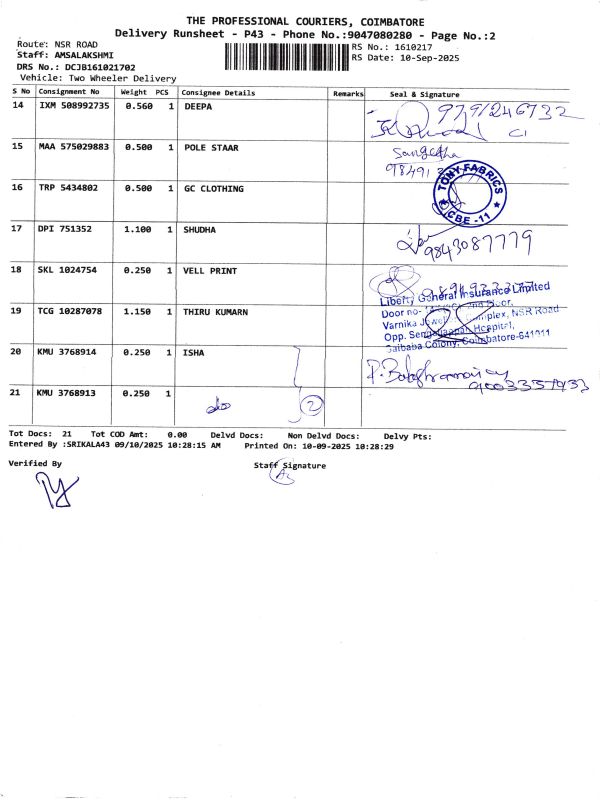 THE PROFESSIONAL COURIERS, COIMBATORE
Delivery Runsheet - P43 - Phone No.:9047080280 - Page No.:2
Route: NSR ROAD
RS No.: 1610217
Staff: AMSALAKSHMI
RS Date: 10-Sep-2025
DRS No.: DCJB161021702
Vehicle: Two Wheeler Delivery
S No Consignment No Weight PCS Consignee Details Remarks Seal & Signature
14 IXM 508992735 0.560 1 DEEPA
9791246732
15 MAA 575029883 0.500 1 POLE STAAR
Sangeetha
98491
16 TRP 5434802 0.500 1 GC CLOTHING
TONY FABRICS
CBE -11
17 DPI 751352 1.100 1 SHUDHA
9843087779
18 SKL 1024754 0.250 1 VELL PRINT
Liberty General Insurance Limited
Door no- 2nd Floor,
19 TCG 10287078 1.150 1 THIRU KUMARN
Varnika Complex, NSR Road
Opp. Hospital,
Saibaba Colony, Coimbatore-641011
20 KMU 3768914 0.250 1 ISHA
21 KMU 3768913 0.250 1
2
Tot Docs: 21 Tot COD Amt: 0.00 Delvd Docs: Non Delvd Docs: Delvy Pts:
Entered By :SRIKALA43 09/10/2025 10:28:15 AM Printed On: 10-09-2025 10:28:29
Verified By
Staff Signature